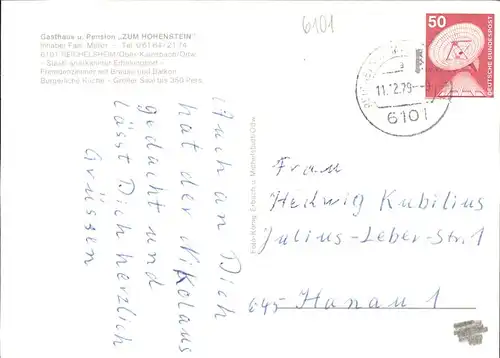 Gasthaus u. Pension „ZUM HOHENSTEIN"
Inhaber Fam. Möller - Tel. 06164-2174
6101 REICHELSHEIM/Ober-Kainsbach/Odw.
- Staatl. anerkannter Erholungsort -
Fremdenzimmer mit Brause und Balkon
Bürgerliche Küche - Großer Saal bis 350 Pers.
6101
50
DEUTSCHE BUNDESPOST
11.12.79
6101
Auch an Dich
hat der Nikolaus
gedacht und
lässt Dich herzlich
Grüssen
Foto-König, Erbach u. Michelstadt/Odw.
Frau
Hedwig Kubilius
Julius-Leber-Str. 1
645 Hanau 1